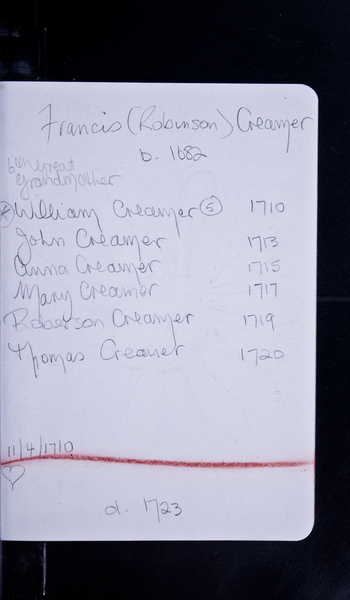 Francis (Robinson) Creamer
b. 1682
6th great
grandmother
William Creamer 5 1710
John Creamer 1713
Anna Creamer 1715
Mary Creamer 1717
Roberson Creamer 1719
Thomas Creamer 1720
11/4/1710
d. 1723